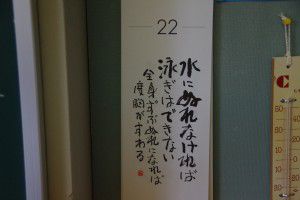 22
水にぬれなければ
泳ぎはできない
全身ずぶぬれになれば
度胸がすわる
C